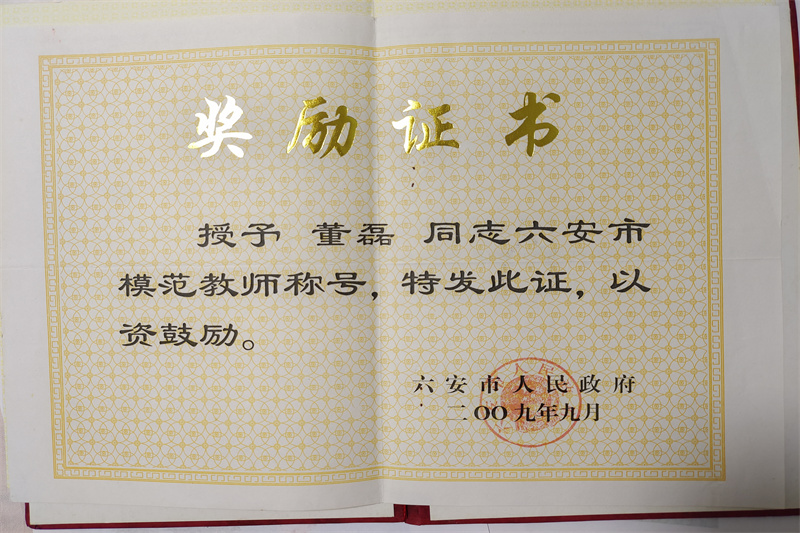 奖励证书
授予 董磊 同志六安市
模范教师称号，特发此证，以
资鼓励。
六安市人民政府
二〇〇九年九月